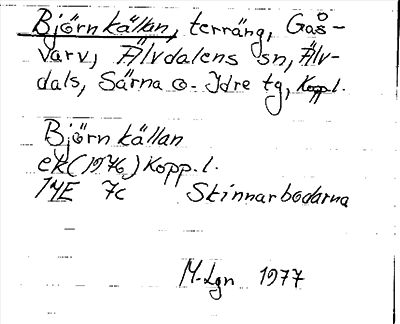 Björnkällan, terräng, Gås-
varv, Älvdalens sn, Älv-
dals, Särna o. Idre tg, Kopp.l.
Björnkällan
ek (1976) Kopp.l.
14E 7c Skinnarbodarna
M-Lgn 1977